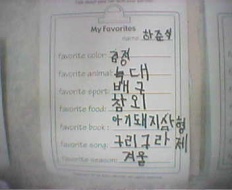 My Favorites
name: 하준석
favorite color: 검정
favorite animal: 늑대
favorite sport: 배구
favorite food: 참외
favorite book: 아기돼지삼형제
favorite song: 구리구라
favorite season: 겨울